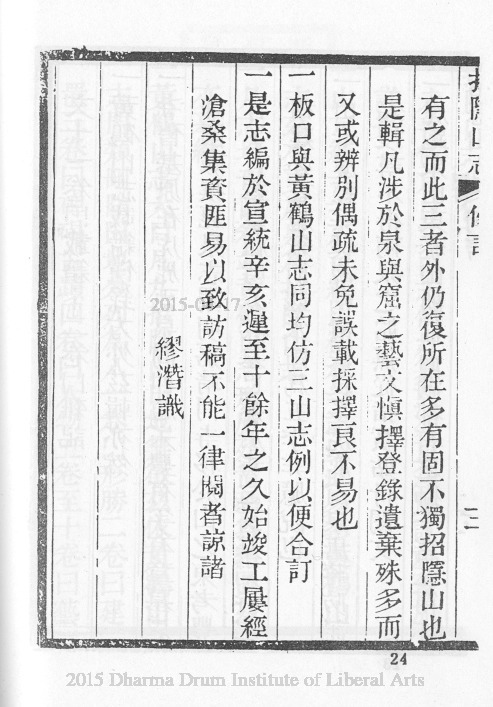 招隱山志
二
有之而此三者外仍復所在多有固不獨招隱山也
是輯凡涉於泉與窟之藝文愼擇登錄遺棄殊多而
又或辨別偶疏未免誤載採擇良不易也
一板口與黃鶴山志同均仿三山志例以便合訂
一是志編於宣統辛亥遲至十餘年之久始竣工屢經
滄桑集資匪易以致訪稿不能一律閱者諒諸
繆潛識
24
2015 Dharma Drum Institute of Liberal Arts